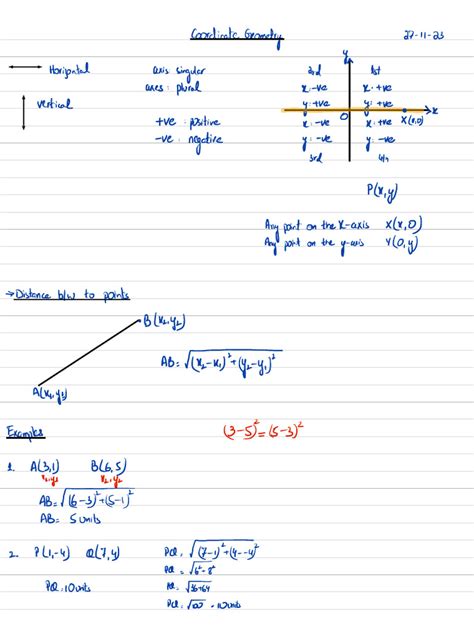 Coordinate Geometry 27-11-23
Horizontal
axis singular
axes : plural
vertical
+ve : positive
-ve : negative
y
3rd 1st
x: -ve x: +ve
y: +ve y: +ve
O X(x,0) x
x: -ve x: +ve
y: -ve y: -ve
3rd 4th
P(x,y)
Any point on the x-axis X(x,0)
Any point on the y-axis Y(0,y)
→Distance b/w to points
B(x₂,y₂)
AB= √(x₂-x₁)²+(y₂-y₁)²
Examples
(3-5)²=(5-3)²
1. A(3,1) B(6,5)
x₂,y₂
AB=√(6-3)²+(5-1)²
AB= 5 units
2. P(1,-4) Q(7,4)
PQ= √(7-1)²+(4--4)²
PQ = √6²-8²
PQ = √36+64
PQ= √100 = 10units
PQ = 10units